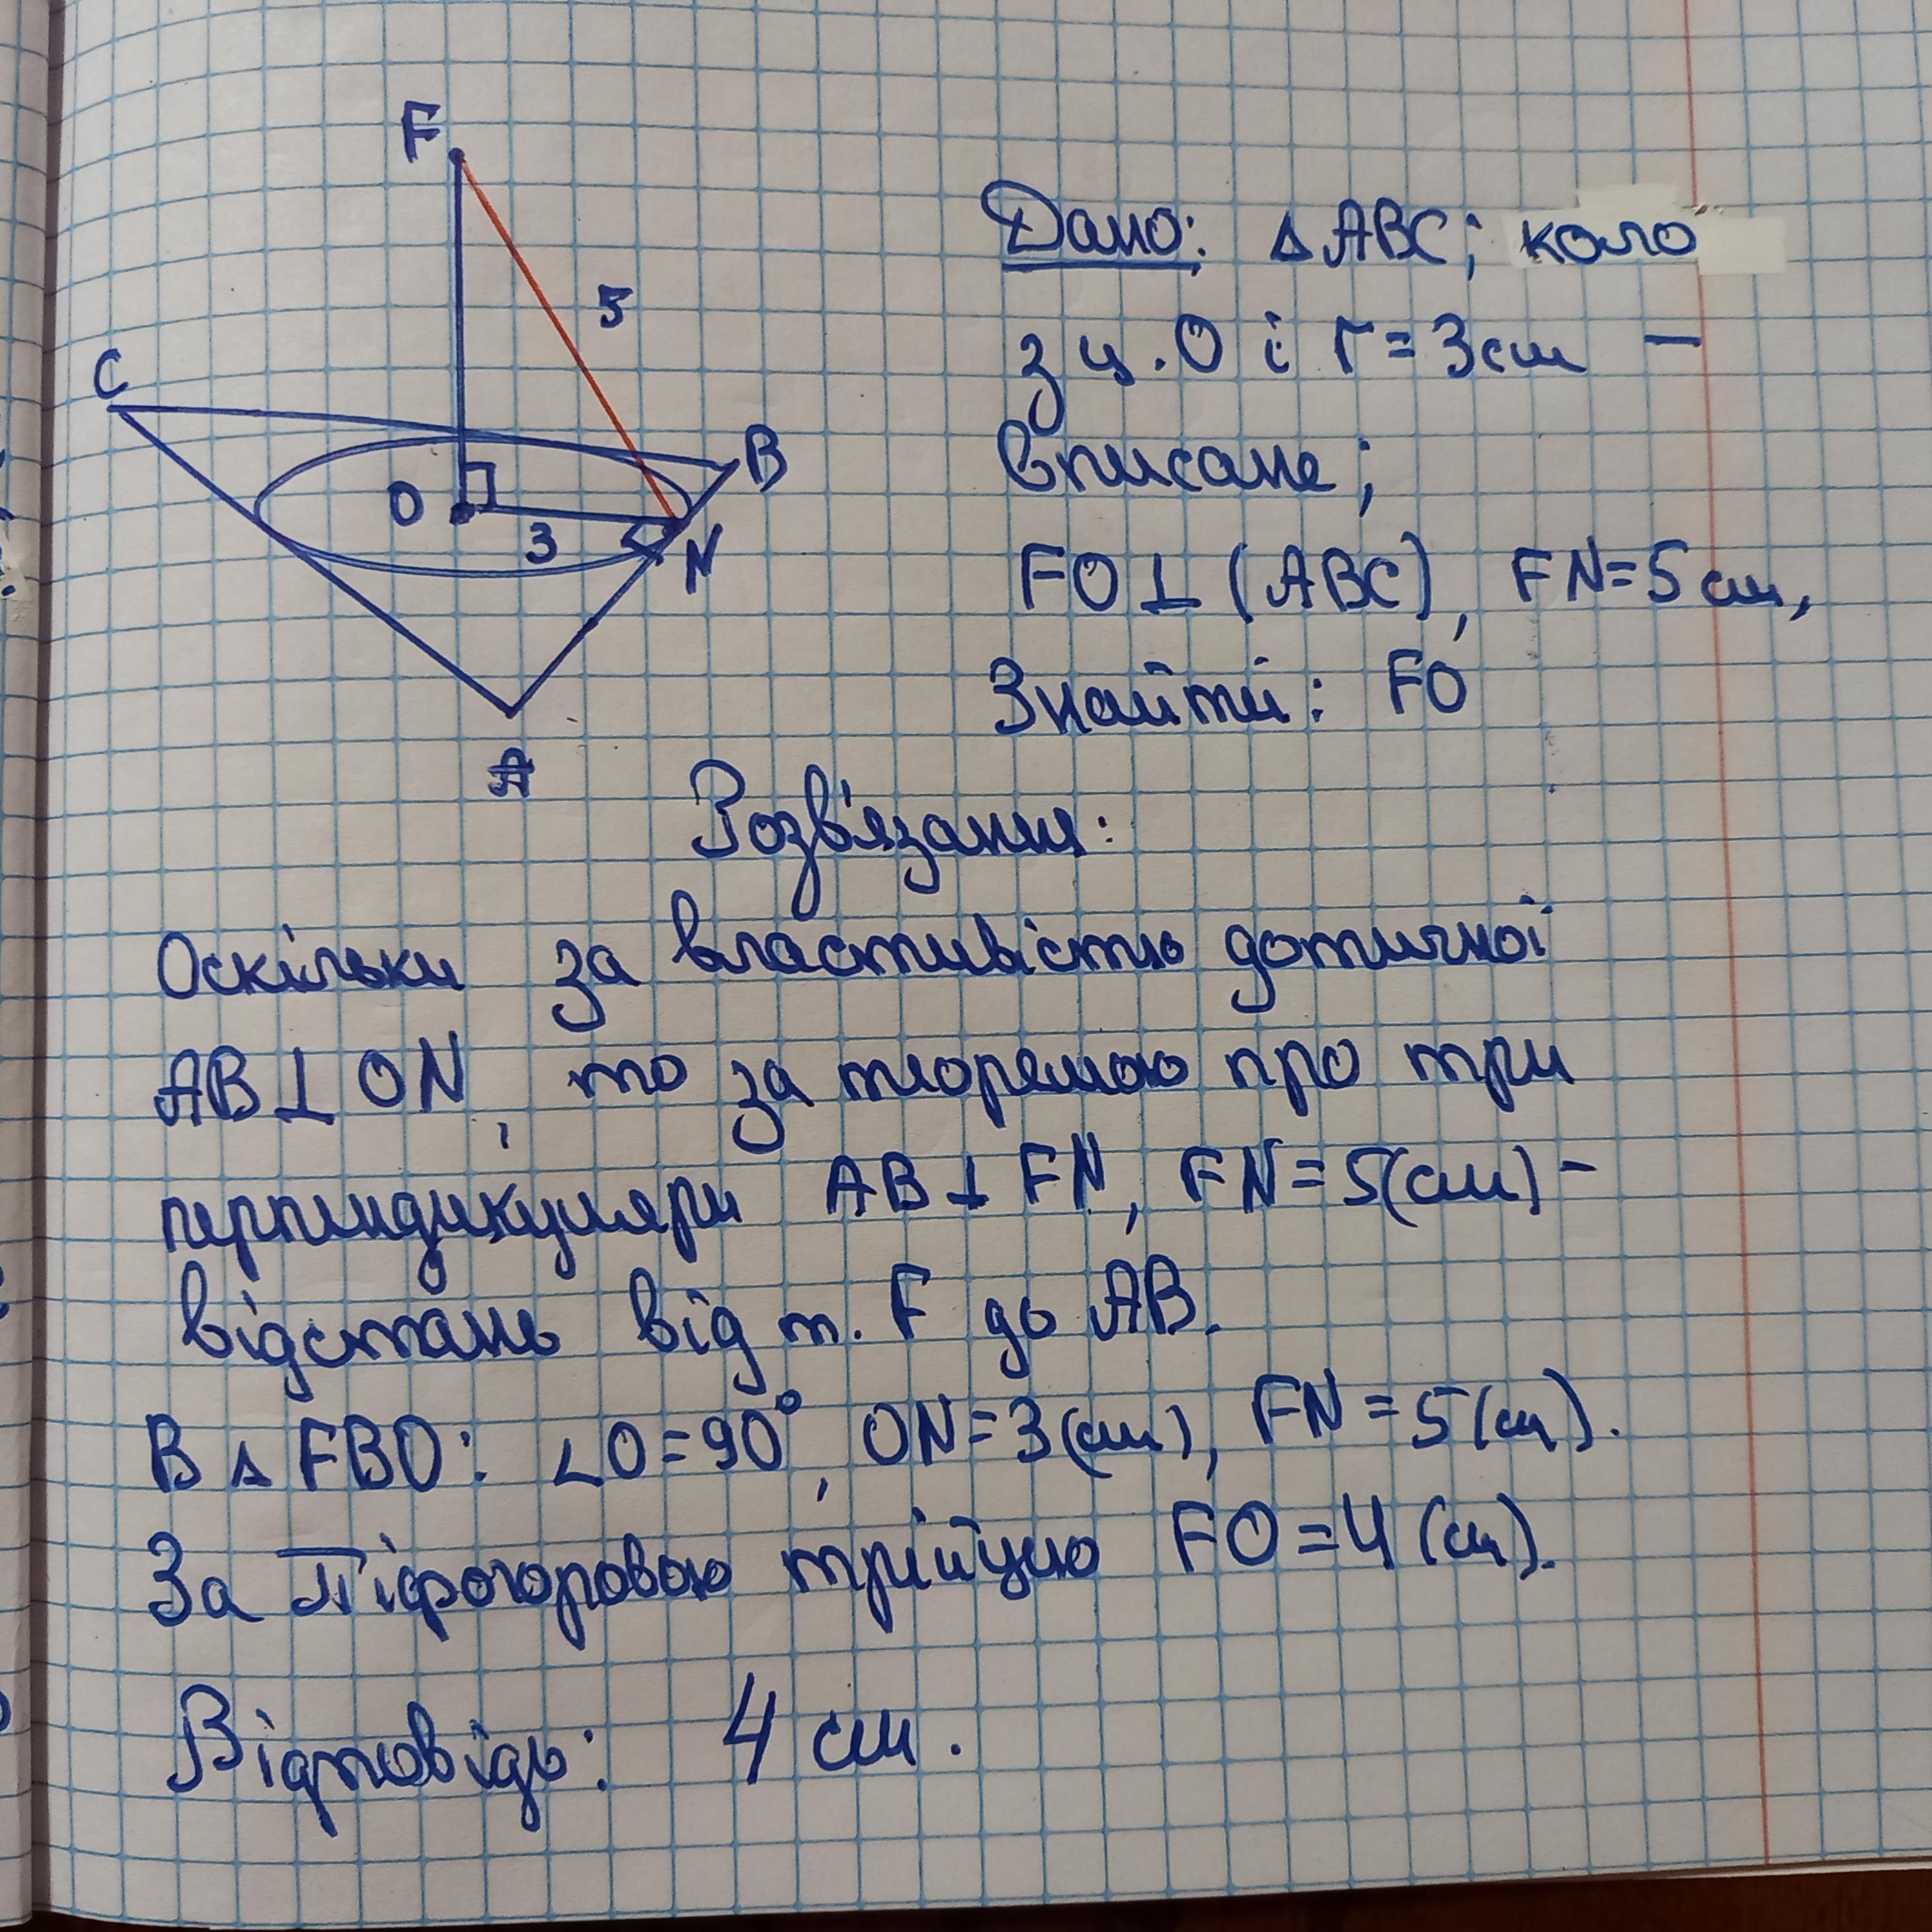 F
5
C
B
O
3
N
A
Дано: △ABC; коло
з ц. O і r = 3 см –
вписане;
FO⊥(ABC), FN=5 см,
Знайти: FO
Розв'язання:
Оскільки за властивістю дотичної
AB⊥ON, то за теоремою про три
перпендикуляри AB⊥FN, FN=5(см) –
відстань від т. F до AB.
В △FBO: ∠O=90°, ON=3(см), FN=5(см).
За Піфагоровою трійцею FO=4(см).
Відповідь: 4 см.